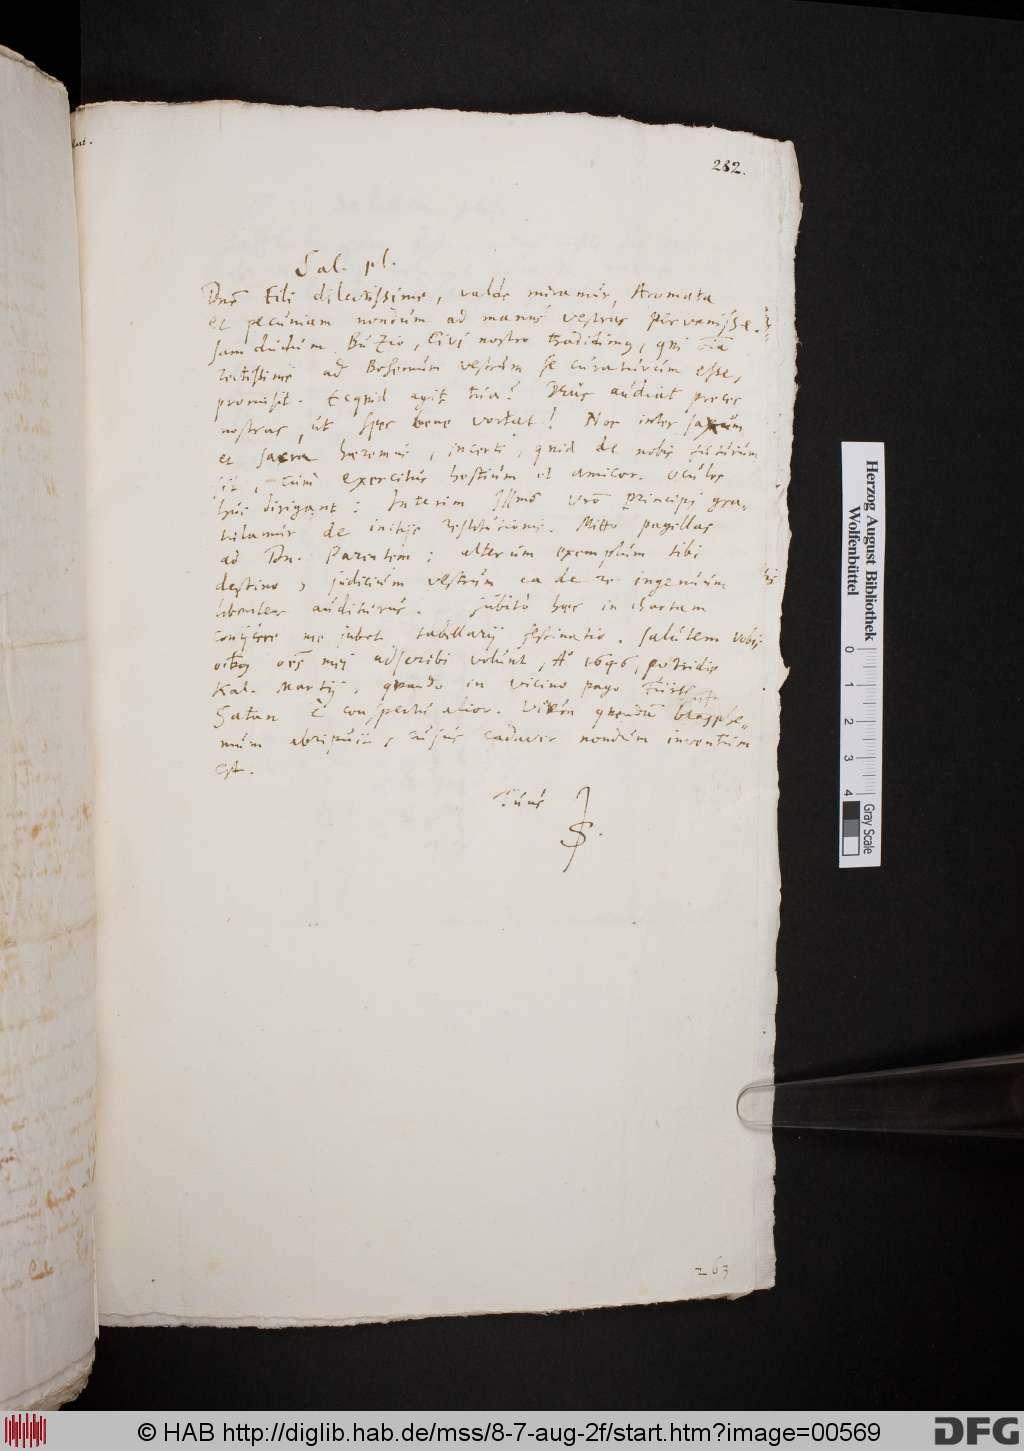 282.
Sal. pl.
Dne Fili dilectissime, valde miramur, Aromata
et pecuniam nondum ad manus vestras pervenisse.
Jam dudum Buzio, Civi nostro tradidimus, qui
rectissime ad Bosemum vestrum se curaturum esse,
promisit. Ecquid agit tua? Deus audiat preces
nostras, ut spes bene vertat! Nos inter saxum
et sacra haeremus, incerti, quid de nobis futurum
sit, cum exercitus hostium et amicor. oculos
huc dirigant: Interim Illmo Vro principi gra-
tulamur de initijs restitutionis. Mitto pagellas
ad Dn. Parentem; alterum exemplum tibi
destino, judicium vestrum ea de re ingenuum
libenter auditurus. Subito haec in chartam
conijcere me jubet tabellarij festinatio. Salutem vobis
oibus oes mei adscribi volunt, Aº 1646, postridie
Kal. Martij, quando in vicino pago Fürth
Satan è conspectu alior. virum quendam blasphe-
mum abripuit, cujus cadaver nondum inventum
est.
Tuus
JS.
263
Herzog August Bibliothek
Wolfenbüttel
0 1 2 3 4
Gray Scale
© HAB http://diglib.hab.de/mss/8-7-aug-2f/start.htm?image=00569
DFG